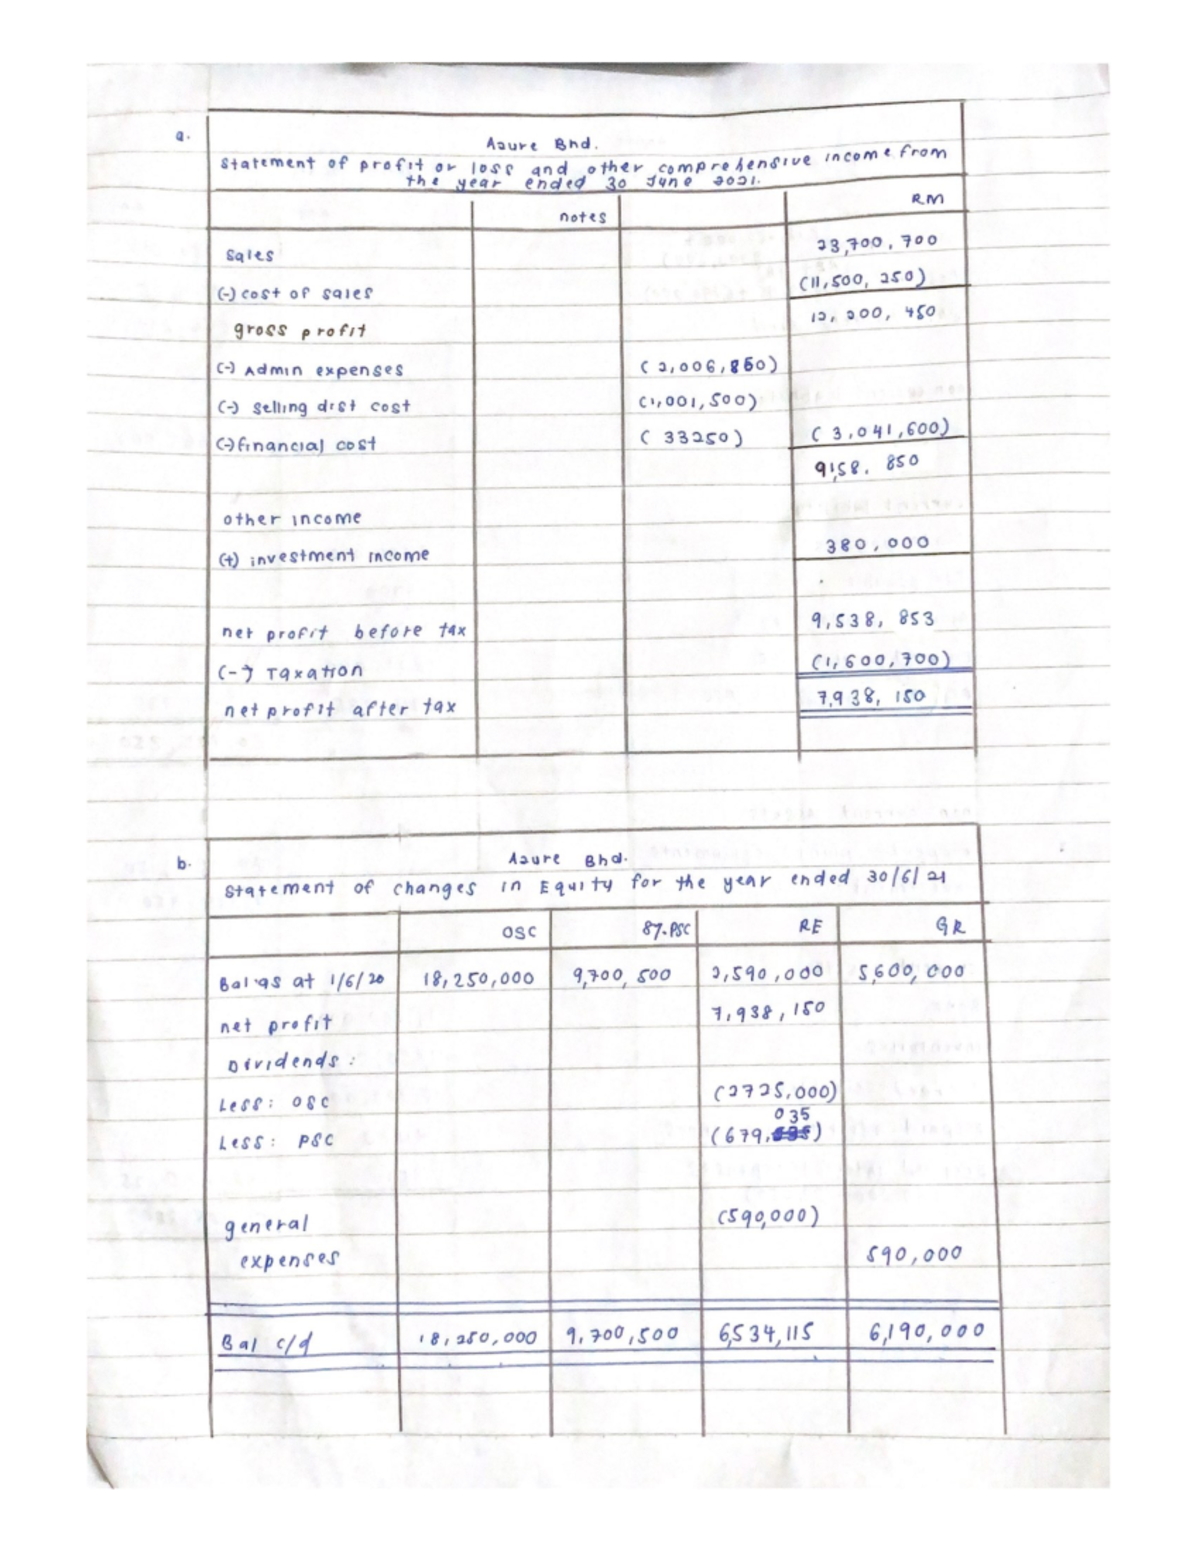 a.
Azure Bhd.
Statement of profit or loss and other comprehensive income from
the year ended 30 June 2021.
notes RM
Sales 23,700,700
(-) cost of sales (11,500,250)
gross profit 12,200,450
(-) Admin expenses (2,006,850)
(-) selling dist cost (1,001,500)
(-) financial cost (33250) (3,041,600)
9158,850
other income
(+) investment income 380,000
net profit before tax 9,538,853
(-) Taxation (1,600,700)
net profit after tax 7,938,150
b.
Azure Bhd.
Statement of changes in Equity for the year ended 30/6/21
OSC 8%PSC RE GR
Bal as at 1/6/20 18,250,000 9,700,500 2,590,000 5,600,000
net profit 7,938,150
Dividends:
Less: OSC (2725,000)
035
Less: PSC (679, )
general (590,000)
expenses 590,000
Bal c/d 18,250,000 9,700,500 6,534,115 6,190,000